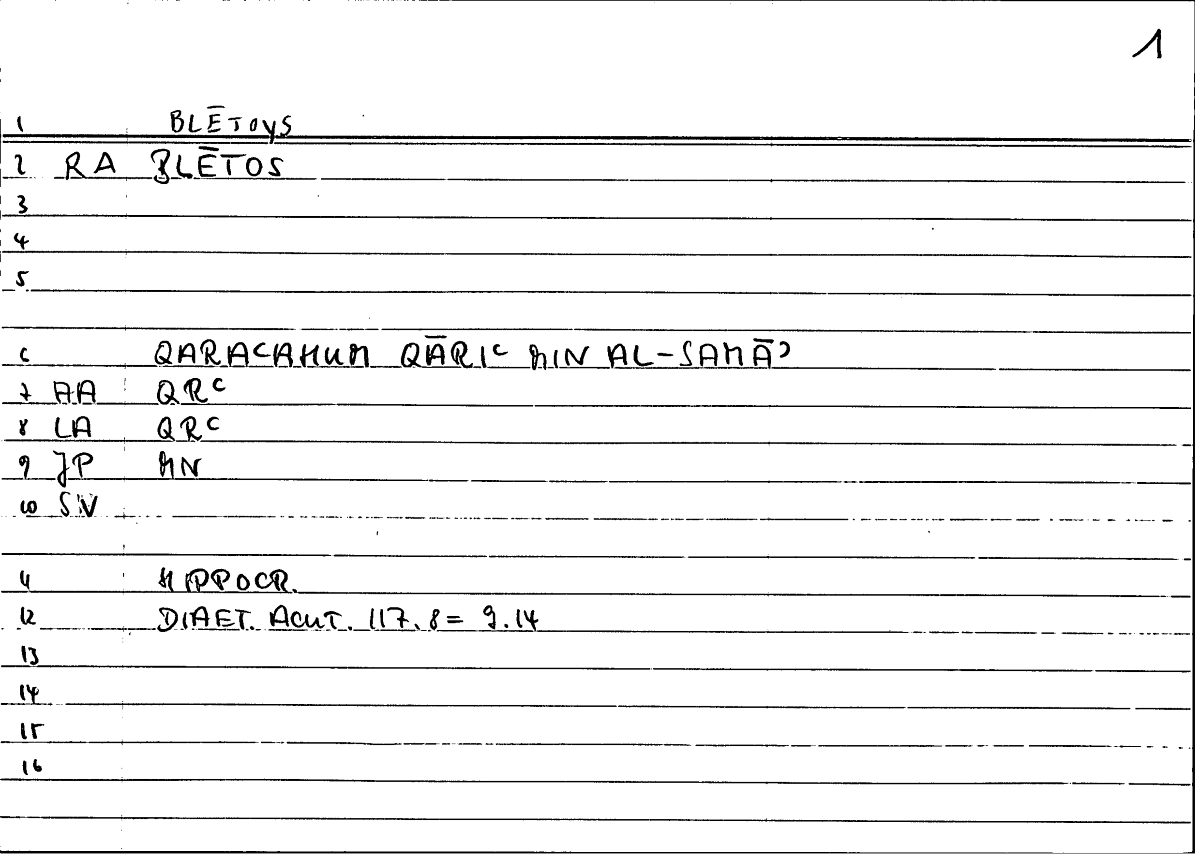 1
1 BLĒTOYS
2 RA BLĒTOS
3
4
5
6 QARAʿAHUM QĀRIʿ MIN AL-SAMĀʾ
7 AA QRʿ
8 LA QRʿ
9 JP MN
10 SN
11 HIPPOCR.
12 DIAET. ACUT. 117.8 = 9.14
13
14
15
16